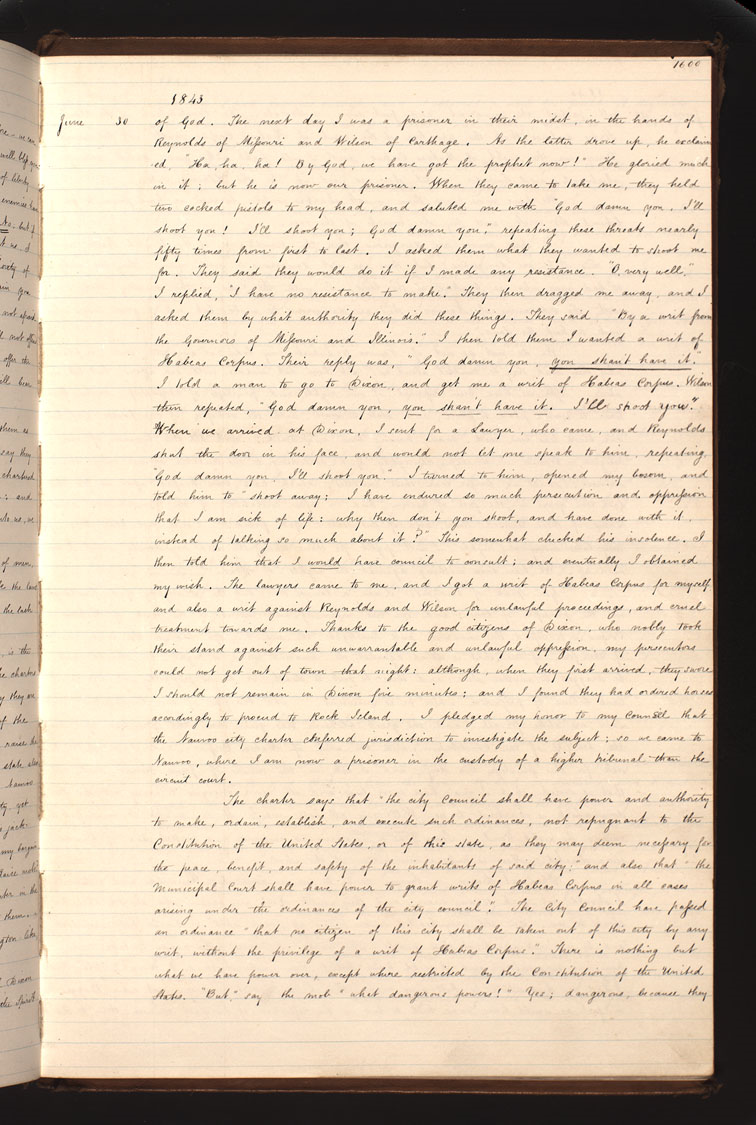 1600
1843
June 30 of God. The next day I was a prisoner in their midst, in the hands of
Reynolds of Missouri and Wilson of Carthage. As the latter drove up, he exclaim
ed, "Ha, ha, ha! By God, we have got the prophet now!" He gloried much
in it; but he is now our prisoner. When they came to take me, they held
two cocked pistols to my head, and saluted me with "God damn you, I'll
shoot you! I'll shoot you; God damn you," repeating these threats nearly
fifty times from first to last. I asked them what they wanted to shoot me
for. They said they would do it if I made any resistance. "O, very well,"
I replied, "I have no resistance to make." They then dragged me away, and I
asked them by what authority they did these things. They said "By a writ from
the Governors of Missouri and Illinois." I then told them I wanted a writ of
Habeas Corpus. Their reply was, "God damn you, you shan't have it."
I told a man to go to Dixon, and get me a writ of Habeas Corpus. Wilson
then repeated, "God damn you, you shan't have it. I'll shoot you."
When we arrived at Dixon, I sent for a Lawyer, who came, and Reynolds
shut the door in his face, and would not let me speak to him, repeating,
"God damn you, I'll shoot you." I turned to him, opened my bosom, and
told him to "shoot away; I have endured so much persecution and oppression
that I am sick of life: why then don't you shoot, and have done with it,
instead of talking so much about it?" This somewhat checked his insolence. I
then told him that I would have council to consult; and eventually I obtained
my wish. The lawyers came to me, and I got a writ of Habeas Corpus for myself
and also a writ against Reynolds and Wilson for unlawful proceedings, and cruel
treatment towards me. Thanks to the good citizens of Dixon, who nobly took
their stand against such unwarrantable and unlawful oppression, my persecutors
could not get out of town that night: although, when they first arrived, they swore
I should not remain in Dixon five minutes; and I found they had ordered horses
accordingly to proceed to Rock Island. I pledged my honor to my Council that
the Nauvoo city charter conferred jurisdiction to investigate the subject; so we came to
Nauvoo, where I am now a prisoner in the custody of a higher tribunal than the
circuit court.
The charter says that "the city Council shall have power and authority
to make, ordain, establish, and execute such ordinances, not repugnant to the
Constitution of the United States, or of this state, as they may deem necessary for
the peace, benefit, and safety of the inhabitants of said city;" and also that "the
Municipal Court shall have power to grant writs of Habeas Corpus in all cases
arising under the ordinances of the city council." The City Council have passed
an ordinance "that no citizen of this city shall be taken out of this city by any
writ, without the privilege of a writ of Habeas Corpus." There is nothing but
what we have power over, except where restricted by the Constitution of the United
States. "But," say the mob "what dangerous powers!" Yes; dangerous, because they